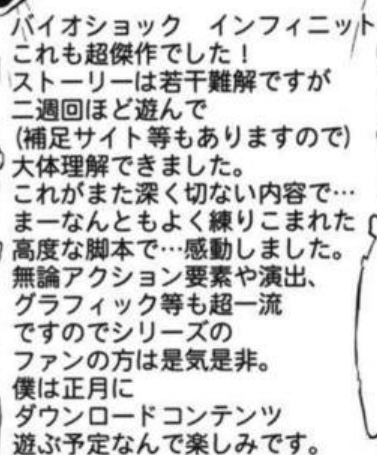 バイオショック　インフィニット
これも超傑作でした！
ストーリーは若干難解ですが
二週回ほど遊んで
(補足サイト等もありますので)
大体理解できました。
これがまた深く切ない内容で…
まーなんともよく練りこまれた
高度な脚本で…感動しました。
無論アクション要素や演出、
グラフィック等も超一流
ですのでシリーズの
ファンの方は是気是非。
僕は正月に
ダウンロードコンテンツ
遊ぶ予定なんで楽しみです。